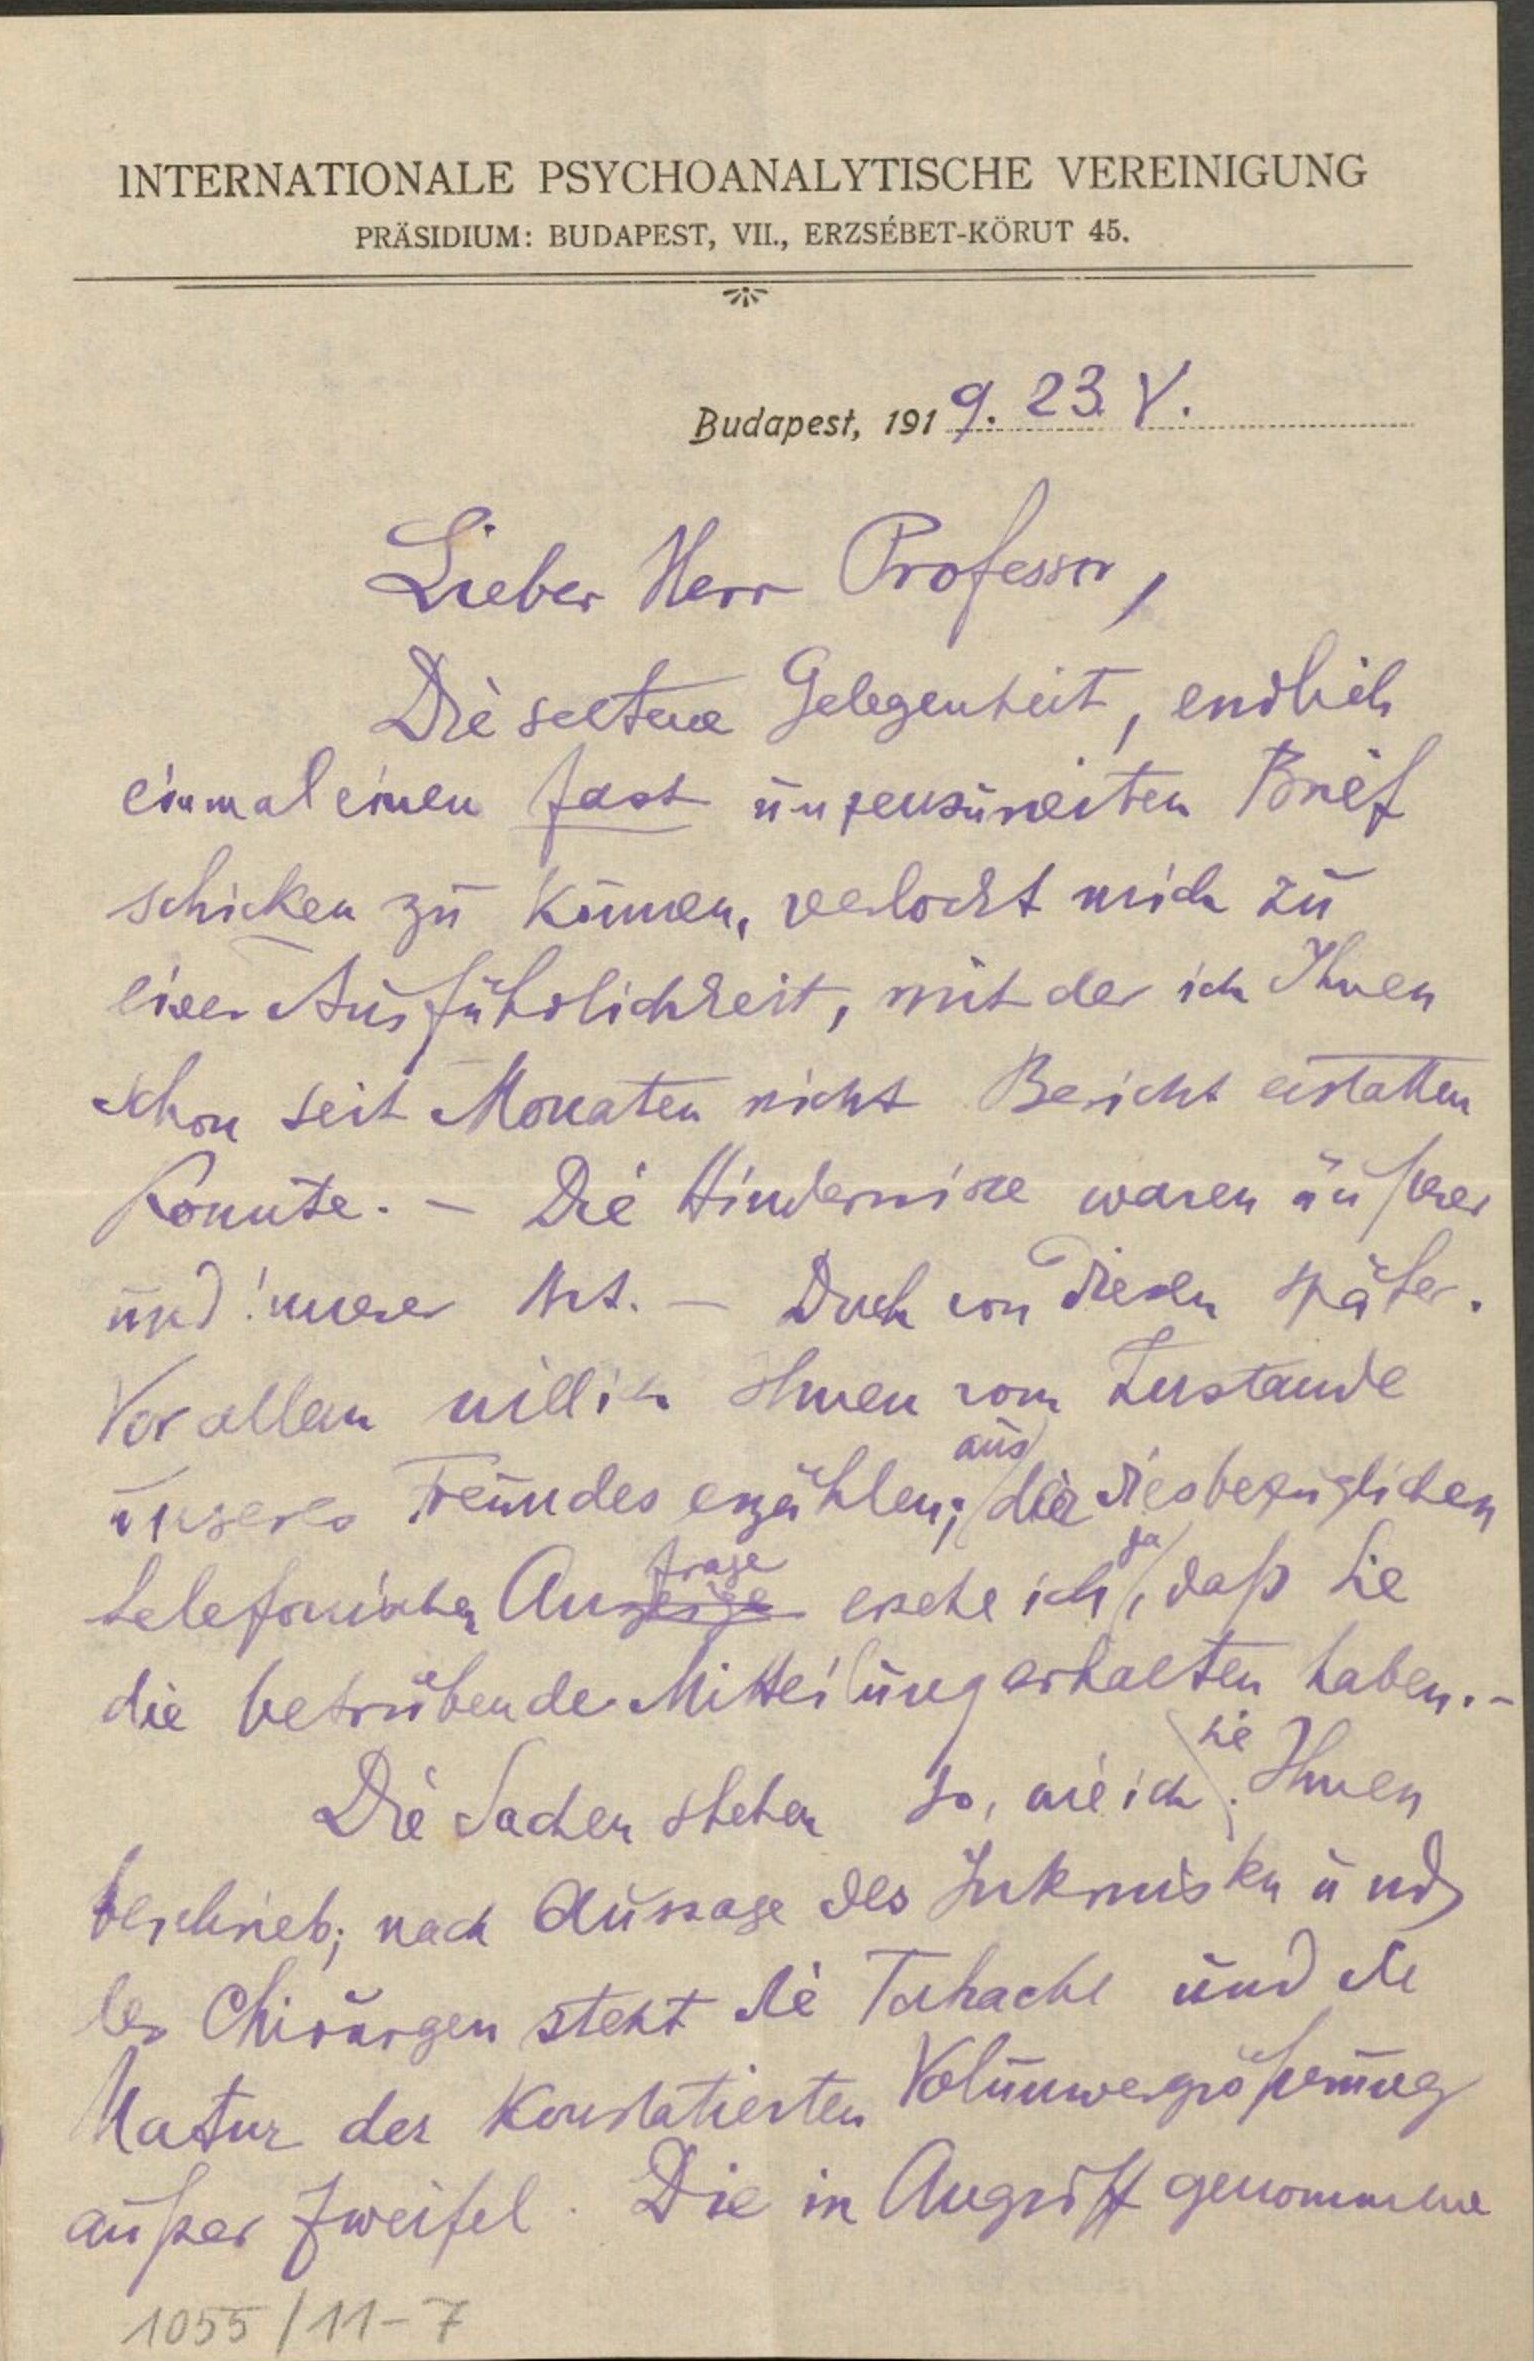 INTERNATIONALE PSYCHOANALYTISCHE VEREINIGUNG
PRÄSIDIUM: BUDAPEST, VII., ERZSÉBET-KÖRUT 45.
Budapest, 1919. 23. V.
Lieber Herr Professor,
Die seltene Gelegenheit, endlich
einmal einen fast unzensurierten Brief
schicken zu können, verlockt mich zu
einer Ausführlichkeit, mit der ich Ihnen
schon seit Monaten nicht Bericht erstatten
konnte. – Die Hindernisse waren äußerer
und innerer Art. – Doch von diesen später.
Vor allem will ich Ihnen vom Zustande
aus
unseres Freundes erzählen; der diesbezüglichen
frage ja
telefonischen Anzeige ersehe ich, daß Sie
die betrübende Mitteilung erhalten haben. –
sie
Die Sachen stehen so, wie ich Ihnen
beschrieb; nach Aussage des Internisten und
des Chirurgen steht die Tatsache und die
Natur der konstatierten Volumvergrößerung
außer Zweifel. Die in Angriff genommene
1055/11-7